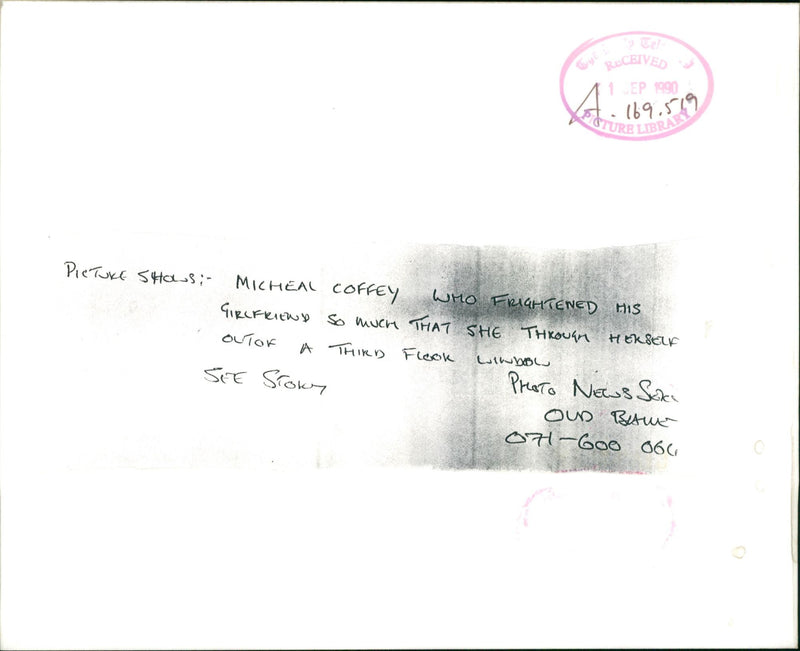 RECEIVED
1 SEP 1990
A. 169.519
PICTURE LIBRARY
PICTURE SHOWS:- MICHEAL COFFEY WHO FRIGHTENED HIS
GIRLFRIEND SO MUCH THAT SHE THROUGH HERSELF
OUTOF A THIRD FLOOR WINDOW
SEE STORY
PHOTO NEWS
OLD
071-600